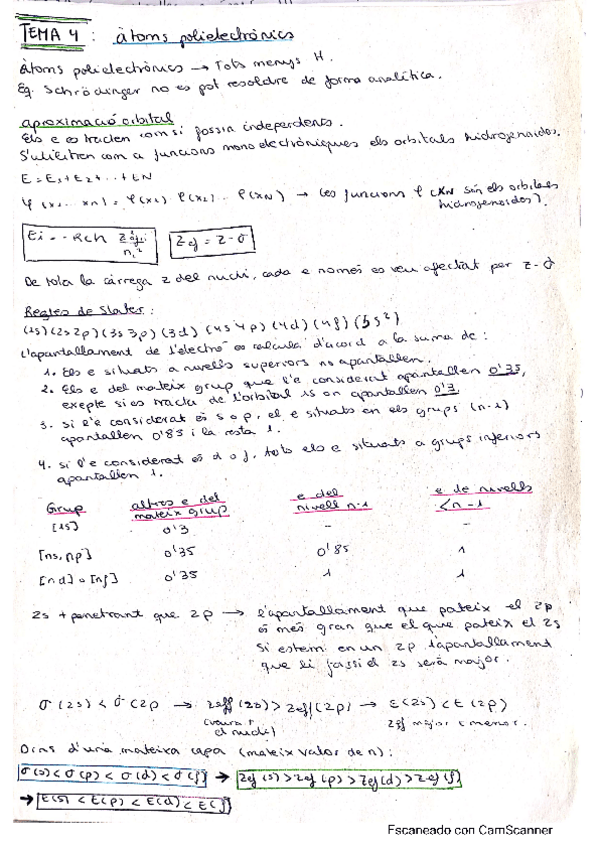 TEMA 4 : àtoms polielectrònics
Àtoms polielectrònics → Tots menys H.
Eq. Schrödinger no es pot resoldre de forma analítica.
aproximació orbital
Els e es tracten com si fossin independents.
S'utilitzen com a funcions monoelectròniques els orbitals hidrogenoides.
E = E1 + E2 + ... + EN
Ψ (x1 ... xn) = φ(x1) φ(x2) ... φ(xN) → (es funcions φ (xN són els orbitals
hidrogenoides).
Ei = - Rch Z²ef,i / ni² Zef = Z - σ
De tota la càrrega Z del nucli, cada e només es veu afectat per Z - σ
Regles de Slater :
(1s) (2s 2p) (3s 3p) (3d) (4s 4p) (4d) (4f) (5s²)
L'apantallament de l'electró es calcula d'acord a la suma de :
1. Els e situats a nivells superiors no apantallen.
2. Els e del mateix grup que l'e considerat apantallen 0'35,
exepte si es tracta de l'orbital 1s on apantallen 0'3.
3. si l'e considerat és s o p, el e situats en els grups (n-1)
apantallen 0'85 i la resta 1.
4. si l'e considerat és d o f, tots els e situats a grups inferiors
apantallen 1.
Grup altres e del mateix grup e del nivell n-1 e de nivells < n-1
[1s] 0'3 - -
[ns, np] 0'35 0'85 1
[nd] o [nf] 0'35 1 1
2s + penetrant que 2p → l'apantallament que pateix el 2p
és més gran que el que pateix el 2s
Si estem en un 2p l'apantallament
que li fassi el 2s serà major.
σ (2s) < σ (2p → Zeff (2s) > Zeff (2p) → E(2s) < E (2p)
el nucli) Zef major E menor.
Dins d'una mateixa capa (mateix valor de n) :
σ(s) < σ(p) < σ(d) < σ(f) → Zef (s) > Zef (p) > Zef(d) > Zef (f)
→ E(s) < E(p) < E(d) < E(f)
Escaneado con CamScanner